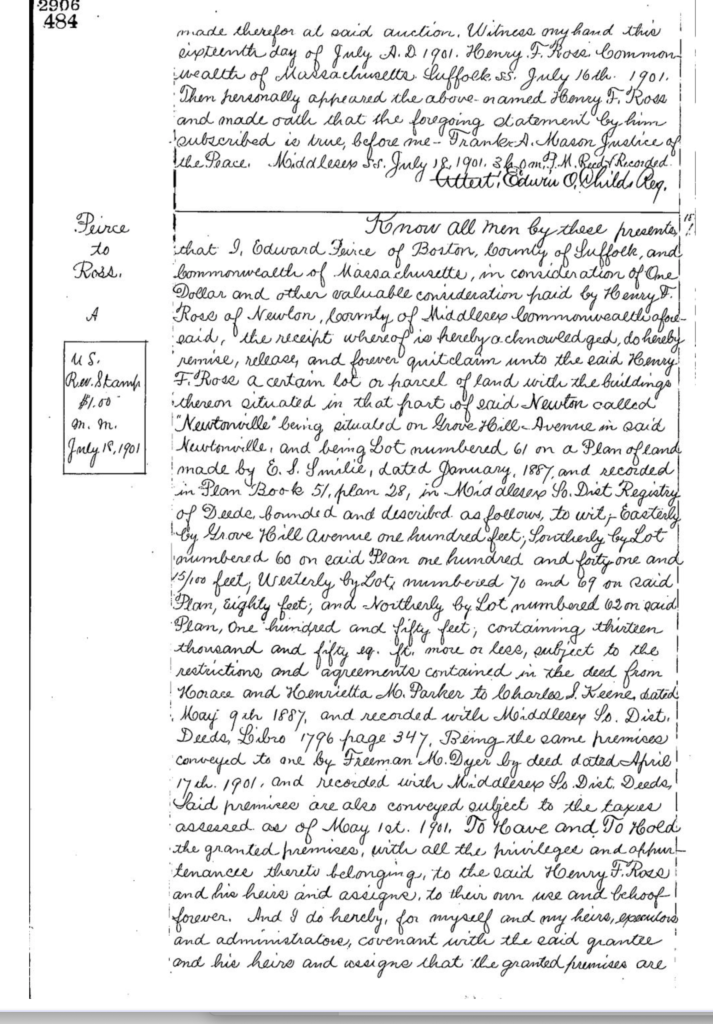 2906
484
made therefor at said auction. Witness my hand this
sixteenth day of July A.D. 1901. Henry F. Ross. Common-
wealth of Massachusetts Suffolk ss. July 16th. 1901.
Then personally appeared the above-named Henry F. Ross
and made oath that the foregoing statement by him
subscribed is true, before me- Frank A. Mason Justice of
the Peace. Middlesex ss. July 18, 1901. 3h. 0m. P.M. Rec'd & Recorded.
Attest, Edwin O. Childs Reg.
Peirce
to
Ross.
A
U.S.
Rev. Stamp
$1.00
m. m.
July 18, 1901
Know all men by these presents
that I, Edward Peirce of Boston, County of Suffolk, and
Commonwealth of Massachusetts, in consideration of One
Dollar and other valuable consideration paid by Henry F.
Ross of Newton, County of Middlesex Commonwealth afore-
said, the receipt whereof is hereby acknowledged, do hereby
remise, release, and forever quitclaim unto the said Henry
F. Ross a certain lot or parcel of land with the buildings
thereon situated in that part of said Newton called
"Newtonville" being situated on Grove Hill Avenue in said
Newtonville, and being Lot numbered 61 on a Plan of land
made by E. S. Smilie, dated January, 1887, and recorded
in Plan Book 51, plan 28, in Middlesex So. Dist Registry
of Deeds, bounded and described as follows, to wit;- Easterly
by Grove Hill Avenue one hundred feet; Southerly by Lot
numbered 60 on said Plan one hundred and forty one and
15/100 feet; Westerly by Lots numbered 70 and 69 on said
Plan, Eighty feet; and Northerly by Lot numbered 62 on said
Plan, One hundred and fifty feet; containing thirteen
thousand and fifty sq. ft. more or less, subject to the
restrictions and agreements contained in the deed from
Horace and Henrietta M. Parker to Charles I. Keene, dated
May 9th 1887, and recorded with Middlesex So. Dist.
Deeds, Libro 1796 page 347. Being the same premises
conveyed to me by Freeman M. Dyer by deed dated April
17th. 1901, and recorded with Middlesex So. Dist. Deeds,
Said premises are also conveyed subject to the taxes
assessed as of May 1st. 1901. To Have and To Hold
the granted premises, with all the privileges and appur-
tenances thereto belonging, to the said Henry F. Ross
and his heirs and assigns, to their own use and behoof
forever. And I do hereby, for myself and my heirs, executors
and administrators, covenant with the said grantee
and his heirs and assigns that the granted premises are